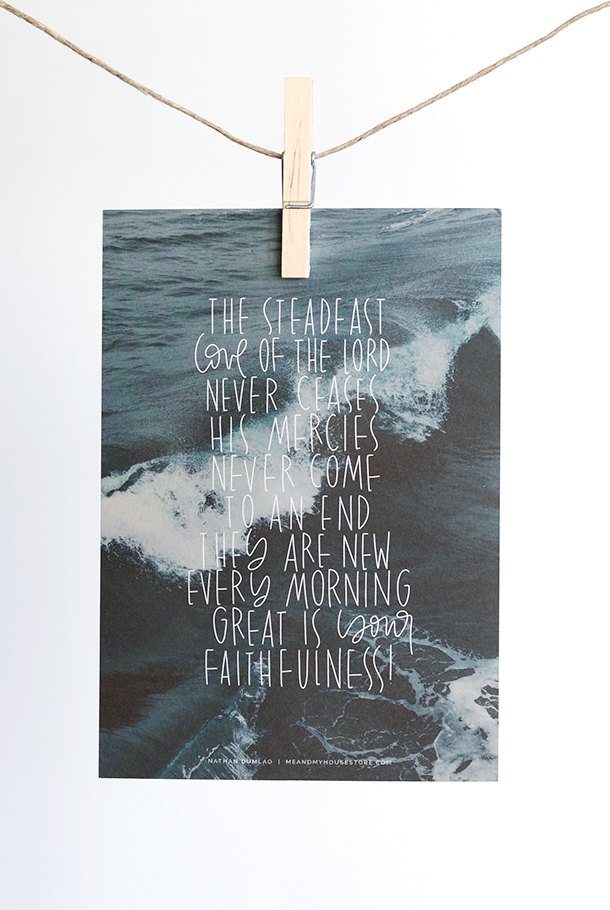 THE STEADFAST
love OF THE LORD
NEVER CEASES
HIS MERCIES
NEVER COME
TO AN END
THEy ARE NEW
EVERy MORNING
GREAT IS your
FAITHFULNESS!
NATHAN DUMLAO | MEANDMYHOUSESTORE.COM